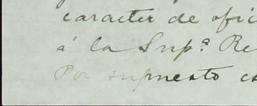 caracter de ofic
á la Supª Re
Por supuesto es